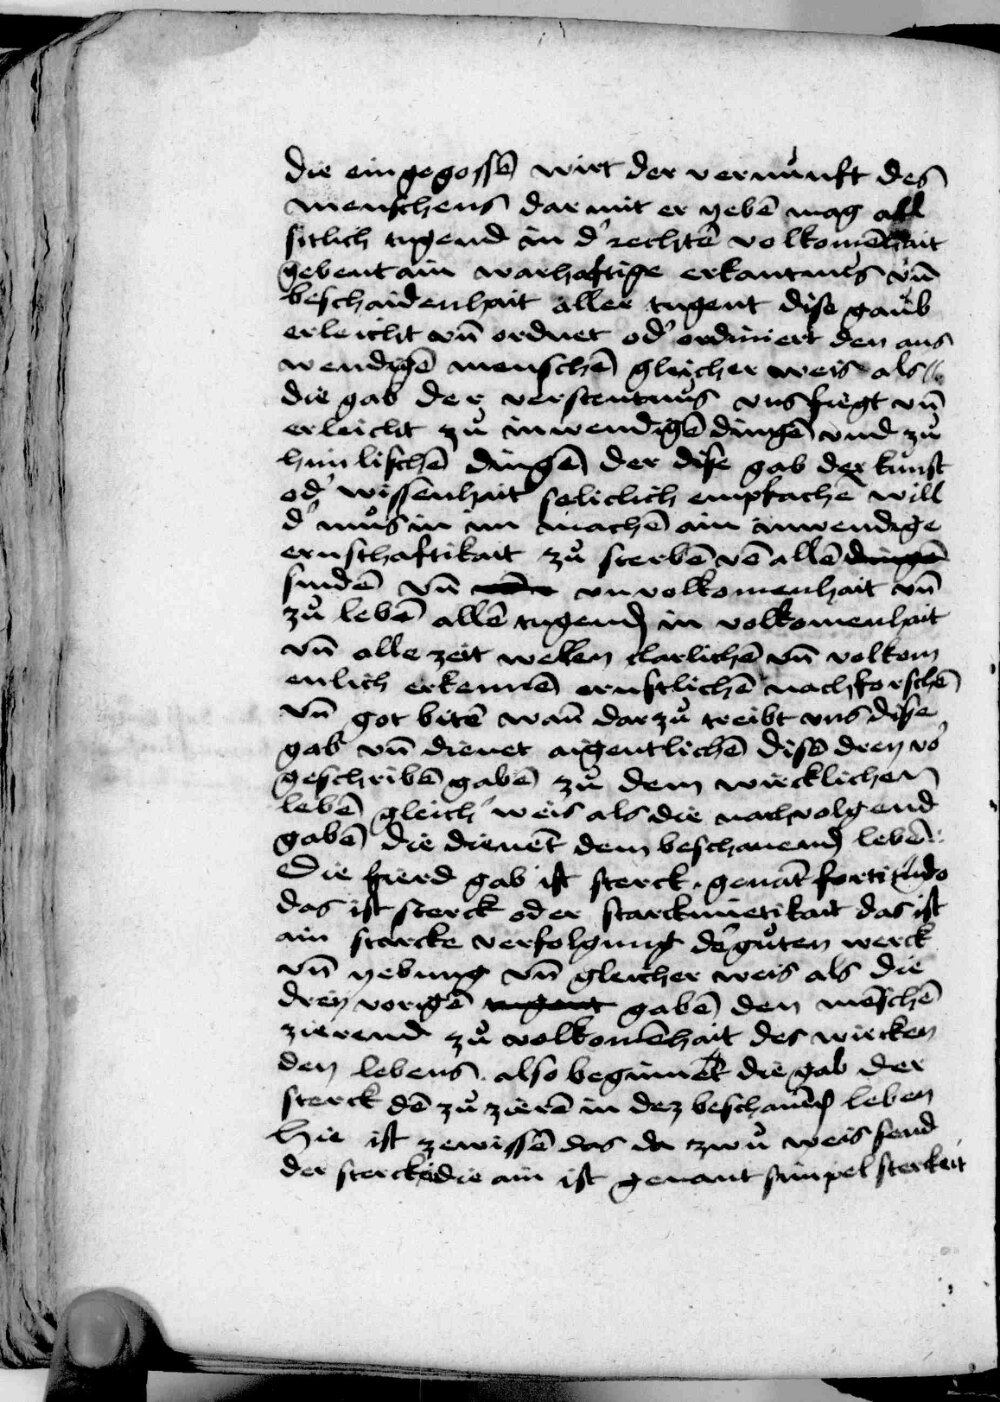 die ein gegossē wirt der vernůnft des
menschens dar mit er yebē mag all
sitlich tugend in d' rechtē volkomēhait
gebent ain warhaftige erkantnus vn̄
beschaidenhait aller tugent dise gaub
erleicht vn̄ ordnet od' ordiniert den aus
wendigē menschē glicher weis als
die gab der verstentnus vns fiegt vn̄
erleicht zů inwendigē dingē vnd zů
himlischē dingē der dise gab der kunst
od' wissenhait seliclich empfachē will
d' můs in im machē ain inwendige
ernschaftikait zů sterbē vō allē dingē
sindē vn̄ vnvolkomenhait vn̄
zů lebē allē tugend in volkomenhait
vn̄ alle zeit wellen clarlichē vn̄ volkom
enlich erkennē ernstlichē nachforschē
vn̄ got bitē wan̄ dar zů treibt vns dise
gab vn̄ dienet aigentlichē dise dren vo'
geschribē gabē zů dem wircklichen
lebē gleich' weis als die nachvolgend
gabē die dienēt dem beschauend lebē
Die fierd gab ist sterck. genāt fortitudo
das ist sterck oder starckmietikait das ist
ain starcke verfolgung d' gůten werck
vn̄ yebung vn̄ gleicher weis als die
dreÿ vorigē tugent gabē den mēschē
zierend zů volkomēhait des wircken
den lebens. also beginnet die gab der
sterck dē zů zierē in dez beschauēd leben
Hie ist zewissē das da zwů weis send
der sterck die ain ist genant simpel sterkeit